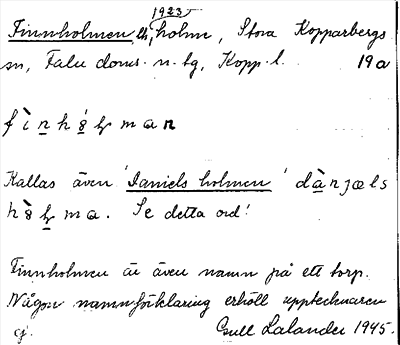 1923
Finnholmen, holme, Stora Kopparbergs
sn, Falu doms. n. tg, Kopp. l. 19a
Kallas även 'Daniels holmen'
Se detta ord!
Finnholmen är även namn på ett torp.
Någon namnförklaring erhöll upptecknaren
ej. Gull Lalander 1945.